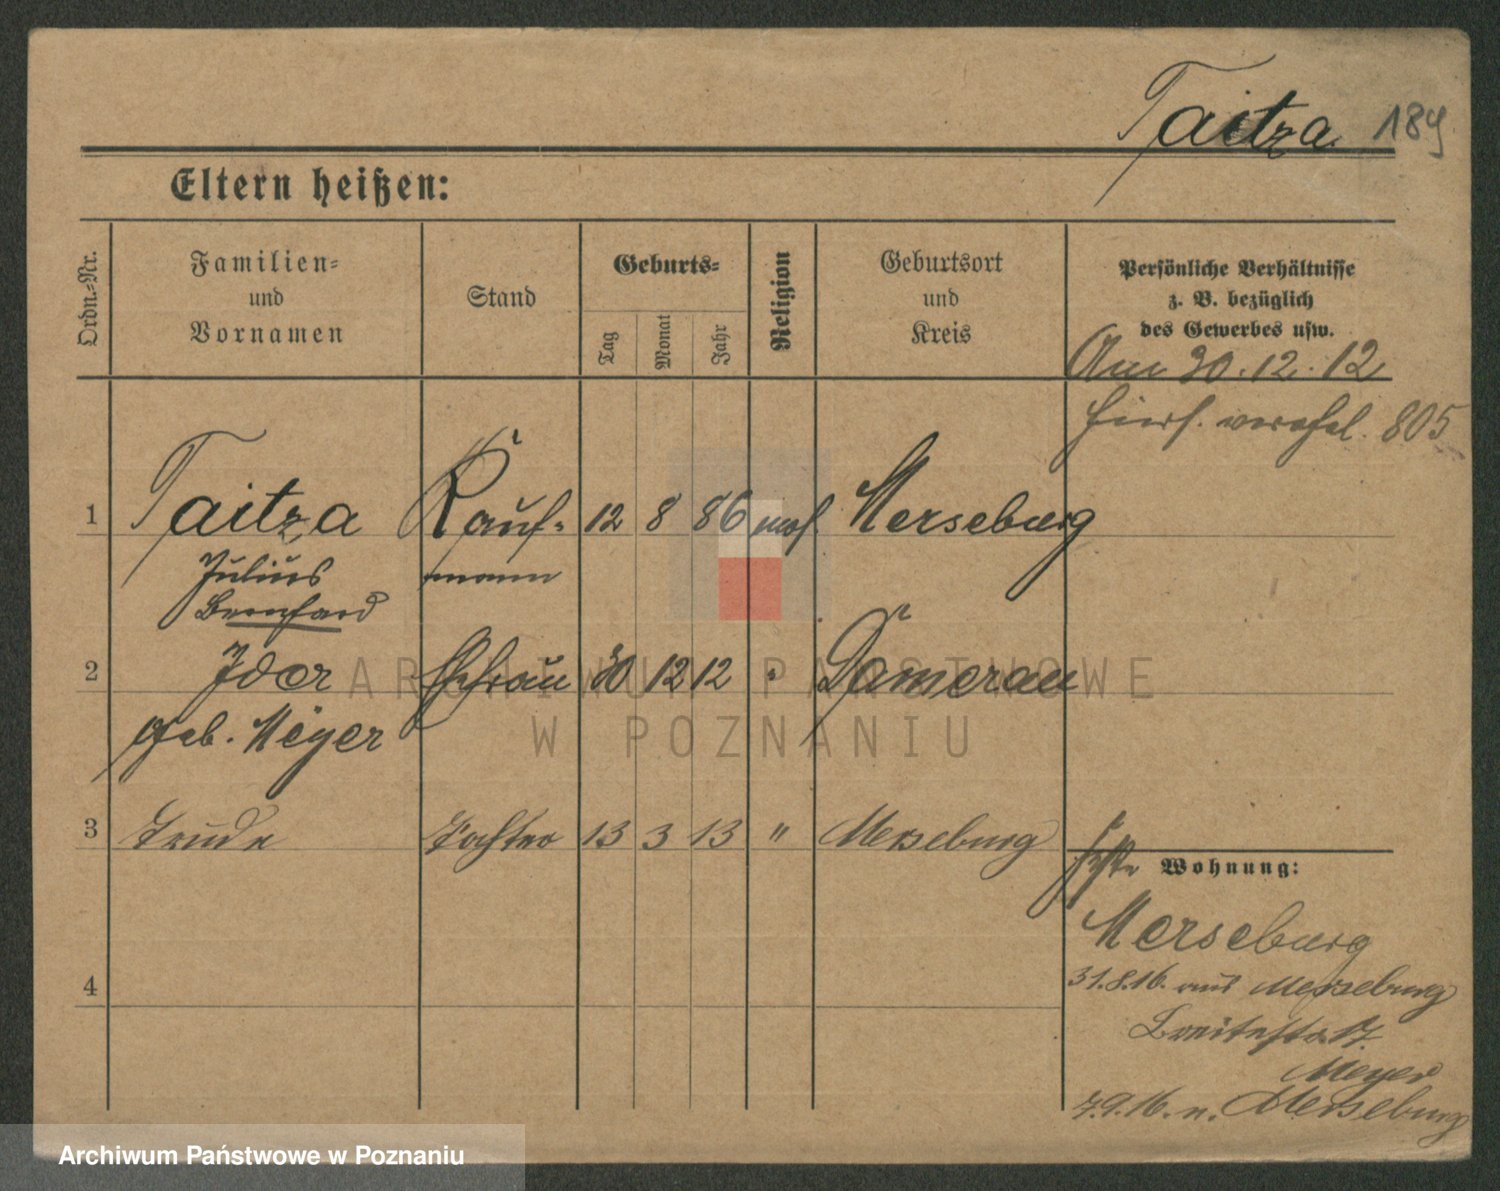 Taitza 189
Eltern heißen:
Ordn.-Nr.
Familien-
und
Vornamen
Stand
Geburts-
Tag
Monat
Jahr
Religion
Geburtsort
und
Kreis
Persönliche Verhältnisse
z. B. bezüglich
des Gewerbes usw.
Am 30.12.12
hiers. verehel. 805
1 Taitza Kauf- 12 8 86 mos. Merseburg
Julius mann
Bernhard
2 Ida Ehefrau 30 12 12 " Damerau
geb. Meyer
3 Trude Tochter 13 3 13 " Merseburg
4
Wohnung:
Merseburg
31.8.16. aus Merseburg
Breitestr. 17
Meyer
7.9.16. n. Merseburg
ARCHIWUM PAŃSTWOWE
W POZNANIU
Archiwum Państwowe w Poznaniu